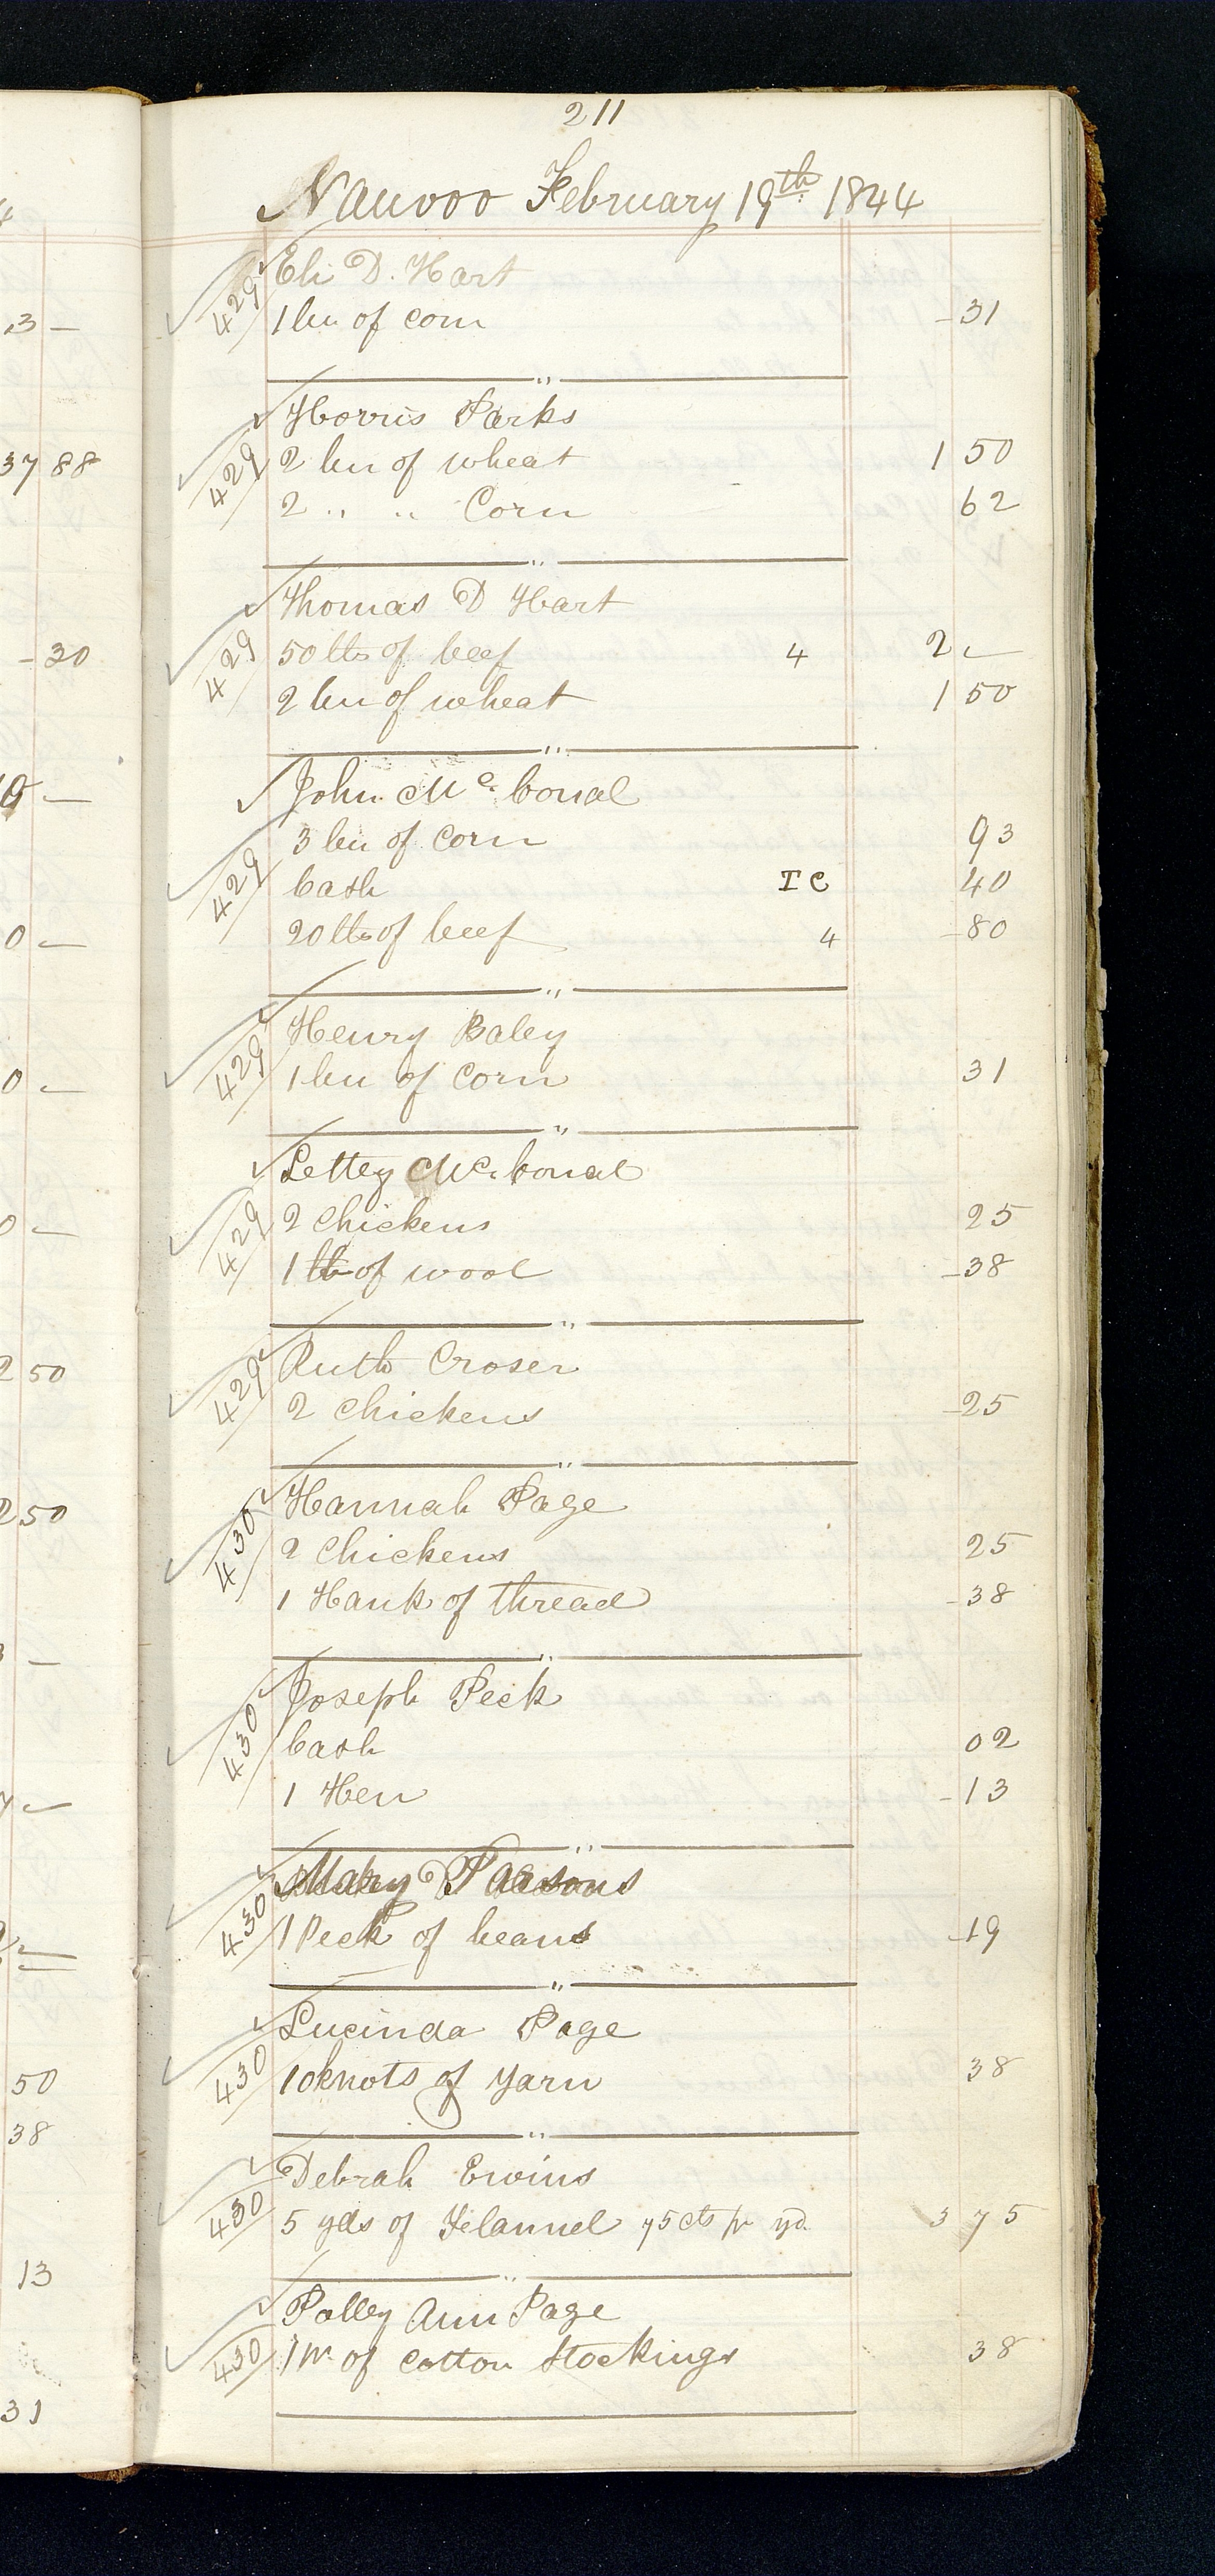 211
Nauvoo February 19th 1844
429 Eli D. Hart
1 bu of corn -31
429 Morris Parks
2 bu of wheat 1 50
2 " " Corn 62
429 Thomas D Hart
50 lbs of beef 4 2 -
2 bu of wheat 1 50
John Mc. Conal
3 bu of corn 93
429 Cash T C 40
20 lbs of beef 4 -80
Henry Baley
429 1 bu of corn 31
Lettey Mc. Conal
429 2 Chickens 25
1 lb of wool -38
429 Ruth Croser
2 Chickens -25
Hannah Page
430 2 Chickens 25
1 Hank of thread -38
Joseph Peck
430 Cash 02
1 Hen -13
Mary Parsons
430 1 Peck of beans -19
Lucinda Page
430 10 knots of yarn 38
Debrah Ewins
430 5 yds of Flannel 75 cts pr yd. 3 75
Polley Ann Page
430 1 pr of cotton Stockings 38
3 -
37 88
-30
0 -
0 -
0 -
2 50
2 50
-
-
50
38
13
31